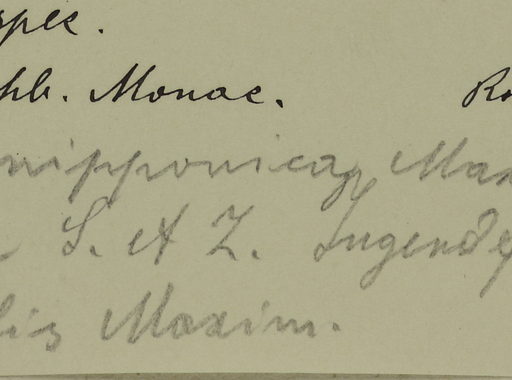 spec.
hb. Monac. Ro
nipponica, Max
S. et Z. Jugende
lis Maxim.